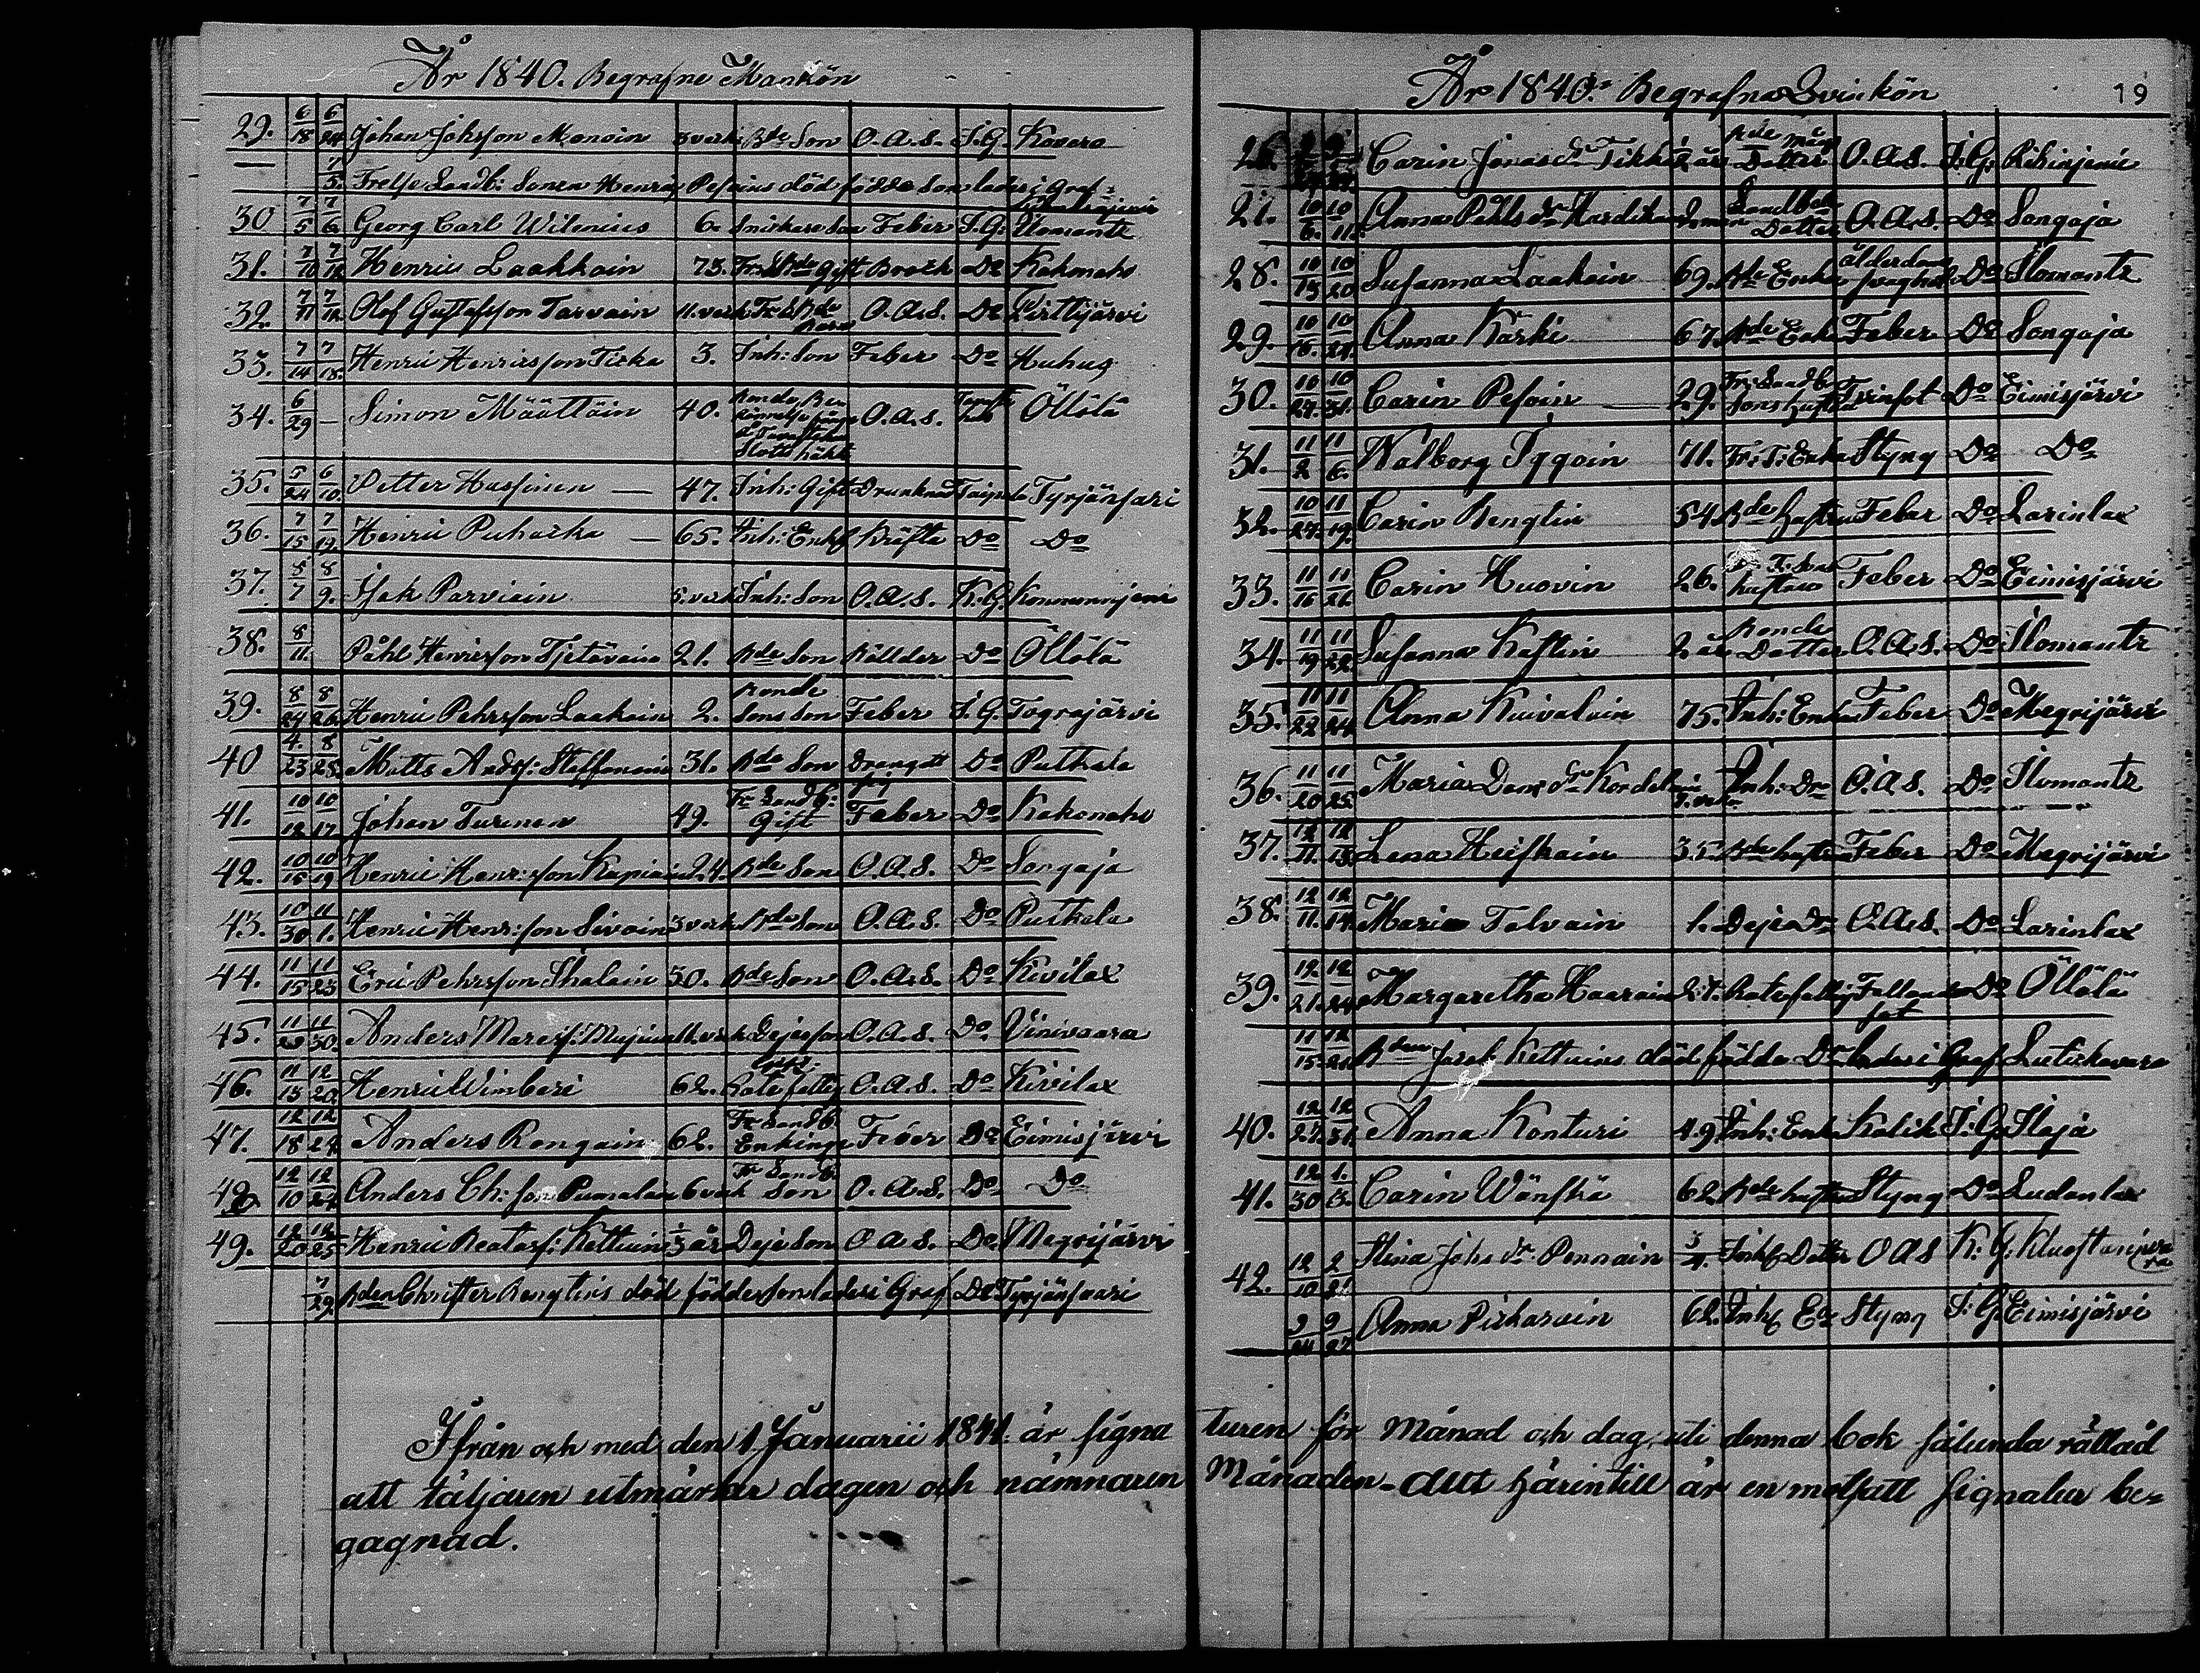 År 1840. Begrafne Mankön
29. 6/18 6/24 Johan Johsson Manoin 3 veck Bde Son O.A.S. I.G. Kovero
— 7/5. Frelse Landb: Sonen Henric Pesoius död födde Son lades i Graf
30 7/5 7/6 Georg Carl Wilenius 6. Snickare Son Feber I.G. Ilomants
31. 7/10 7/12 Henric Laakkoin 73. Gift Brock Do Kakonaho
32. 7/11 7/12. Olof Gustafsson Tarvain 11. veck O.A.S. Do Pirttijärvi
33. 7/14 7/18. Henric Henricsson Tirka 3. Inh: Son Feber Do Huhus
34. 6/29 — Simon Määttäin 40. O.A.S. Öllölä
35. 5/24 6/10. Petter Hassinen — 47. Inh: Gift Drunknad Taipale Tyrjänsari
36. 7/15 7/19. Henric Puhacka — 65. Inh: Enkl Kräfta Do Do
37. 8/7 8/9. Isak Parviain 5. veck Inh: Son O.A.S. K.G.
38. 8/11. Påhl Henricsson Tjetäväin 21. Bde Son Kälder Do Öllölä
39. 8/24 8/26 Henric Pehrsson Laakoin 2. Bonde Sons Son Feber I.G. Tograjärvi
40 4./23 8/28. Matts Anderss: Steffanain 31. Bde Son Do Putkela
41. 10/12 10/17. Johan Turenen 49. Fr Landb: Gift Feber Do Kakonaho
42. 10/15 10/19 Henric Henricsson Kapiain 24. Bde Son O.A.S. Do Songaja
43. 10/30 11/1. Henric Henr:sson Sivoin 3 veck Bde Son O.A.S. Do Putkela
44. 11/15 11/23 Eric Pehrsson Ihalain 50. Bde Son O.A.S. Do Kivilax
45. 11/29 11/30. Anders Maress: 11. veck Dejesson O.A.S. Do. Vinivaara
46. 11/15 12/20. Henric Wimberi 62. Rotefattig O.A.S. Do Kivilax
47. 12/18 12/27. Anders Rongain 62. Fr Landb. Enkling Feber Do Eimisjärvi
48 12/10 12/27. Anders Ch:son Pumalain 6 veck Fr Landb. Son O.A.S. Do Do
49. 12/20 12/25 Henric Beatass: Kettuin 1/3 år Deje Son O.A.S. Do. Megrijärvi
7/29. Bden Christer Bengtins död födde son lades i Graf Do Tyrjänsaari
År 1840. Begrafne Qvinkön 19
26. Carin Jonas dr Tikk 1/2 år Bde måg Dotter O.A.S. I.G.
27. 10/6. 10/11. Anna Påhls dr Hardikain Landbde Dotter O.A.S. Do Songaja
28. 10/15 10/20 Susanna Laakoin 69. Bde Enka ålderdoms svaghet Do Ilomants
29. 10/18. 10/24. Anna Kärki 67. Bde Enka Feber Do Songaja
30. 10/27. 10/31. Carin Pesoin — 29. Fr: Landb. Sons hustru Do Eimisjärvi
31. 11/2 11/6. Walborg Iggoin 71. Fr: T: Enka Styng Do Do
32. 10/27. 11/19. Carin Bengtin 54. Bde hustru Feber Do Larinlax
33. 11/16 11/21 Carin Huovin 26. hustru Feber Do Eimisjärvi
34. 11/19 11/22 Susanna Kastin 2 år Bonde Dotter O.A.S. Do Ilomants
35. 11/22 11/24 Anna Kuivalain 75. Inh: Enka Feber Do Megrijärvi
36. 11/20 11/25 Maria Dan: dr Kordelain 7. veck Inh: Dr O.A.S. Do Ilomants
37. 12/11. 12/13 Lena Heiskain 35. Bde hustru Feber Do Megrijärvi
38. 12/11. 12/14 Maria Talvain 1. Deje Dr O.A.S. Do Larinlax
39. 12/21. 12/24 Margaretha Haarain 27. Rotefattig Fallande sot Do Öllölä
11/15 12/21. Bden Josef Kettuins död födda Dr lades i Graf Lutikkavara
40. 12/27. 12/31. Anna Konturi 49 Inh: Enka Kolik I:G. Ilaja
41. 12/30 1./3. Carin Wänskä 62. Bde hustru Styng Do Ludanlax
42. 12/10 2/21. Stina Johs dr Pennain 3/4. Inh: Dotter O A S K: G.
9/24 9/27 Anna Pirkarvin 62. Inh: Ea Styng I: G. Eimisjärvi
Ifrån och med den 1. Januarii 1841. är signaturen för Månad och dag uti denna bok sålunda rättad
att täljaren utmärker dagen och nämnaren Månaden - Allt härintill är en motsatt signatur be=
gagnad.